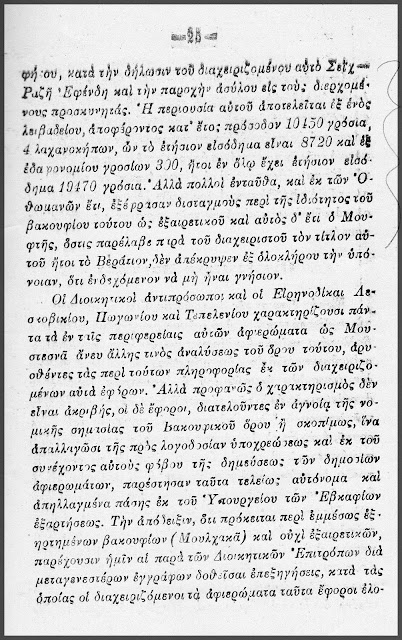 25
φήτου, κατὰ τὴν δήλωσιν τοῦ διαχειριζομένου αὐτὸ Σεῒχ
Ραζῆ Ἐφένδη καὶ τὴν παροχὴν ἀσύλου εἰς τοὺς διερχομέ-
νους προσκυνητάς. Ἡ περιουσία αὐτοῦ ἀποτελεῖται ἐξ ἑνὸς
λειβαδείου, ἀποφέροντος κατ' ἔτος πρόσοδον 10450 γρόσια,
4 λαχανοκήπων, ὧν τὸ ἐτήσιον εἰσόδημα εἶναι 8720 καὶ ἐξ
ἐδαφονομίου γροσίων 300, ἤτοι ἐν ὅλῳ ἔχει ἐτήσιον εἰσό-
δημα 19470 γρόσια. Ἀλλὰ πολλοὶ ἐνταῦθα, καὶ ἐκ τῶν Ὀ-
θωμανῶν ἔτι, ἐξέφρασαν δισταγμοὺς περὶ τῆς ἰδιότητος τοῦ
βακουφίου τούτου ὡς ἐξαιρετικοῦ καὶ αὐτὸς δ' ἔτι ὁ Μου-
φτῆς, ὅστις παρέλαβε παρὰ τοῦ διαχειριστοῦ τὸν τίτλον αὐ-
τοῦ ἤτοι τὸ Βεράτιον, δὲν ἀπέκρυψεν ἐξ ὁλοκλήρου τὴν ὑπό-
νοιαν, ὅτι ἐνδεχόμενον νὰ μὴ ᾖναι γνήσιον.
Οἱ Διοικητικοὶ ἀντιπρόσωποι καὶ οἱ Εἰρηνοδίκαι Λε-
σκοβικίου, Πωγωνίου καὶ Τεπελενίου χαρακτηρίζουσι πάν-
τα τὰ ἐν ταῖς περιφερείαις αὐτῶν ἀφιερώματα ὡς Μου-
στεσνᾶ ἄνευ ἄλλης τινὸς ἀναλύσεως τοῦ ὅρου τούτου, ἀρυ-
σθέντες τὰς περὶ τούτων πληροφορίας ἐκ τῶν διαχειριζο-
μένων αὐτὰ ἐφόρων. Ἀλλὰ προφανῶς ὁ χαρακτηρισμὸς δὲν
εἶναι ἀκριβής, οἱ δὲ ἔφοροι, διατελοῦντες ἐν ἀγνοίᾳ τῆς νο-
μικῆς σημασίας τοῦ Βακουφικοῦ ὅρου ἢ σκοπίμως, ἵνα
ἀπαλλαγῶσι τῆς πρὸς λογοδοσίαν ὑποχρεώσεως καὶ ἐκ τοῦ
συνέχοντος αὐτοὺς φόβου τῆς δημεύσεως τῶν δημοσίων
ἀφιερωμάτων, παρέστησαν ταῦτα τελείως αὐτόνομα καὶ
ἀπηλλαγμένα πάσης ἐκ τοῦ Ὑπουργείου τῶν Ἐβκαφίων
ἐξαρτήσεως. Τὴν ἀπόδειξιν, ὅτι πρόκειται περὶ ἐμμέσως ἐξ-
ηρτημένων βακουφίων (Μουλχακᾶ) καὶ οὐχὶ ἐξαιρετικῶν,
παρέχουσιν ἡμῖν αἱ παρὰ τῶν Διοικητικῶν Ἐπιτρόπων διὰ
μεταγενεστέρων ἐγγράφων δοθεῖσαι ἐπεξηγήσεις, κατὰ τὰς
ὁποίας οἱ διαχειριζόμενοι τὰ ἀφιερώματα ταῦτα ἔφοροι ἐλο-